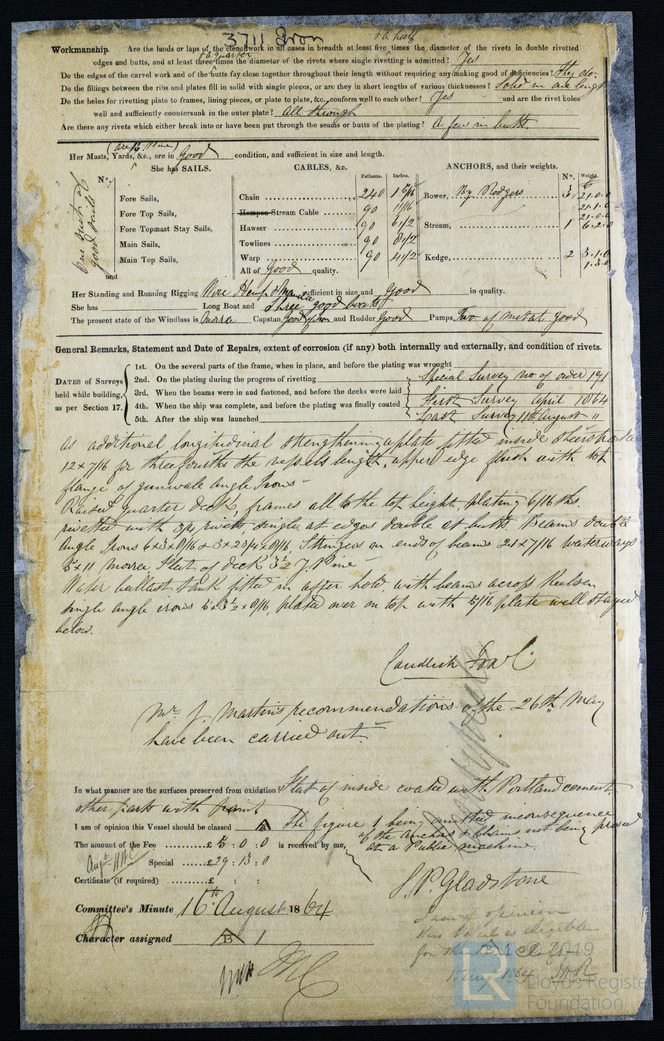 3711 Iron
& a half
Workmanship. Are the lands or laps of the clenchwork in all cases in breadth at least five times the diameter of the rivets in double rivetted
edges and butts, and at least three times the diameter of the rivets where single rivetting is admitted? Yes
Do the edges of the carvel work and of the butts fay close together throughout their length without requiring any making good of deficiencies? They do.
Do the fillings between the ribs and plates fill in solid with single pieces, or are they in short lengths of various thicknesses? Solid in one length
Do the holes for rivetting plate to frames, lining pieces, or plate to plate, &c., conform well to each other? Yes and are the rivet holes
well and sufficiently countersunk in the outer plate? All through
Are there any rivets which either break into or have been put through the seams or butts of the plating? a few in butts
Her Masts, Yards, &c., are in good condition, and sufficient in size and length.
She has SAILS. CABLES, &c. ANCHORS, and their weights.
N°. Fathoms. Inches. N°. Weights.
One suit of good sails &
Fore Sails,
Fore Top Sails,
Fore Topmast Stay Sails,
Main Sails,
Main Top Sails,
and
Chain 240
Hempen Stream Cable 90
Hawser 90 6 1/2
Towlines 90 8 1/2
Warp 90 4 1/2
All of Good quality.
Bower, By Rodgers 3
Stream, 1 6.2.0
Kedge, 2 3.1.0
1.3.0
Her Standing and Running Rigging Wire Hemp & Manilla sufficient in size and Good in quality.
She has Long Boat and Three good boats
The present state of the Windlass is Morra Capstan Good & Iron and Rudder Good Pumps Two of metal good
General Remarks, Statement and Date of Repairs, extent of corrosion (if any) both internally and externally, and condition of rivets.
DATES of Surveys held while building, as per Section 17.
1st. On the several parts of the frame, when in place, and before the plating was wrought
2nd. On the plating during the progress of rivetting Special Survey no of order 191
3rd. When the beams were in and fastened, and before the decks were laid First Survey April 1864
4th. When the ship was complete, and before the plating was finally coated Last Survey 11th August "
5th. After the ship was launched
as additional longitudinal strengthening a plate fitted inside sheerstrake
12 x 7/16 for three fourths the vessels length, upper edge flush with top
flange of gunwale angle Irons -
Raised quarter deck, frames all to the top height, plating 6/16 ths.
rivetted with 3/4 rivets, single at edges double at butts. Beams double
angle Irons Stringers on ends of beams 21 x 7/16 waterways
11 morra, Flat of deck Pine
Water ballast tank fitted in after hold, with beams across Keelson
single angle irons plated over on top with 5/16 plate well stayed
below.
Candlish Fox & Co
Mr J. Martins recommendations of the 26th May
have been carried out -
In what manner are the surfaces preserved from oxidation? Flat of inside coated with Portland cement,
other parts with paint
I am of opinion this Vessel should be classed the figure 1 being omitted in consequence
of the anchors & Chains not being proved
at a Public machine.
The amount of the Fee £5 : 0 : 0 is received by me,
Special £29 : 13 : 0
Certificate (if required) £ : :
J. P. Gladstone
Committee's Minute 16th August 1864
Character assigned B 1
I am of opinion
this Vessel is eligible
for the
15 Aug 1864
© 2019
LR
Lloyd's Register
Foundation